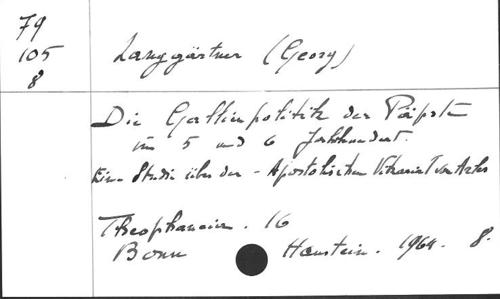 79
105
8
Langgärtner (Georg)
Die Gallienpolitik der Päpste
im 5 und 6 Jahrhundert.
Eine Studie über den - Apostolischen Vikariat von Arles
Theophaneia. 16
Bonn Hanstein. 1964. 8.